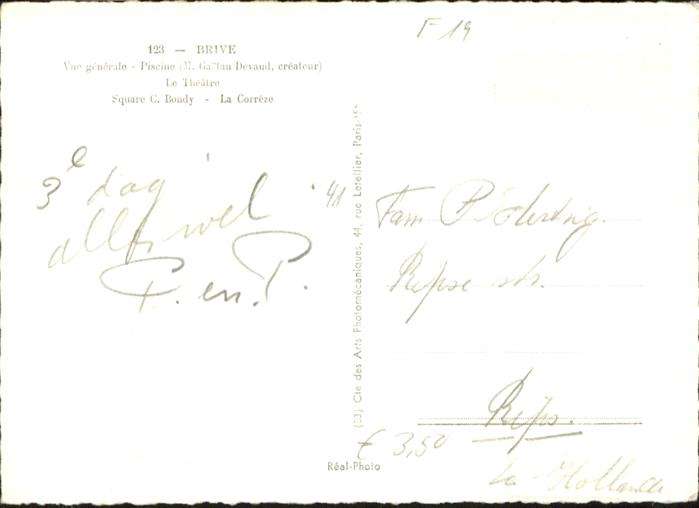 F 19
123 — BRIVE
Vue générale - Piscine (M. Gaëtan Devaud, créateur)
Le Théâtre
Square C. Boudy - La Corrèze
3e dag
alles wel
P. en P.
(33) Cie des Arts Photomécaniques, 44, rue Letellier, Paris-15e
Réal-Photo
Fam
Ripse str.
Rips.
€ 3,50
Hollande